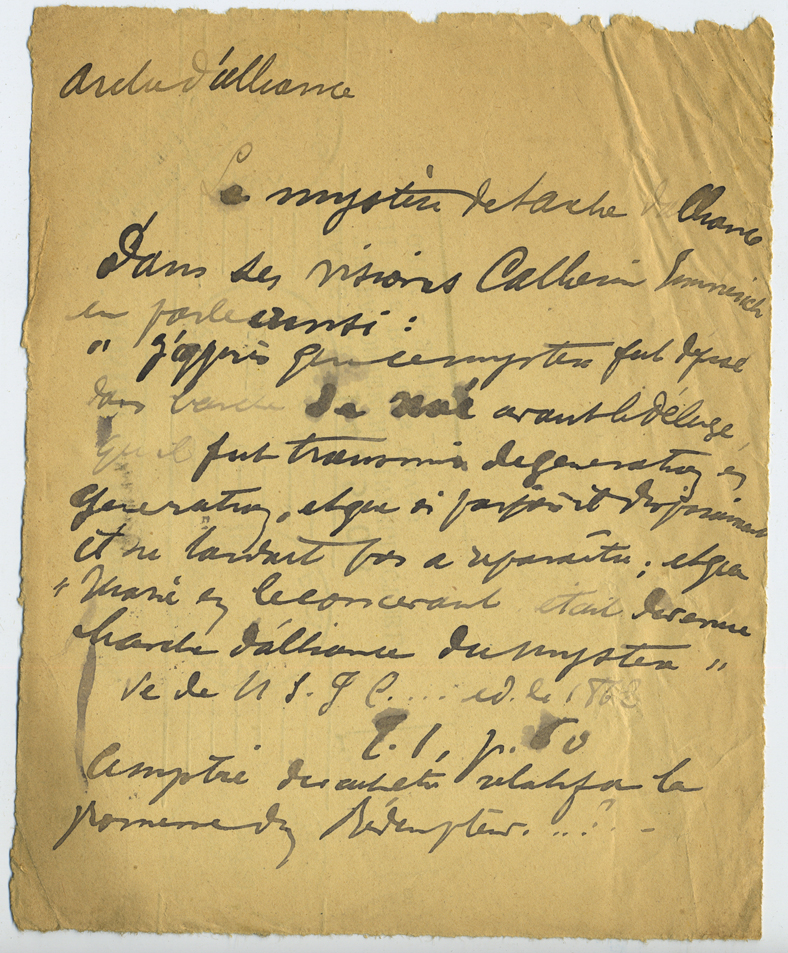 Arche d'alliance
Le mystère de l'arche d'alliance
Dans ses visions Catherine Emmerich
en parle ainsi :
" J'appris que ce mystère fut déposé
dans l'arche de Noé avant le déluge,
qu'il fut transmis de generation en
generation, et que si parfois il disparaissait
il ne tardait pas a reparaître ; et que
" Marie en le concevant était devenue
l'arche d'alliance du mystère "
Ve de N S. J C. .... ed. de 1863
T. 1, p. 60
Ce mystère relatif a la
promesse du Rédempteur. ...?..